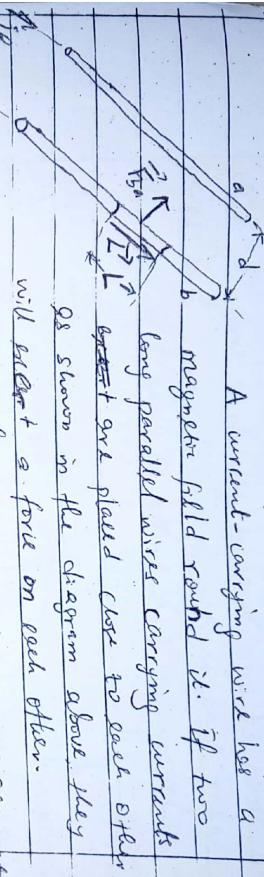 a
d
b
F_ba
L
A current-carrying wire has a
magnetic field round it. If two
long parallel wires carrying currents
are placed close to each other
as shown in the diagram above, they
will exert a force on each other.